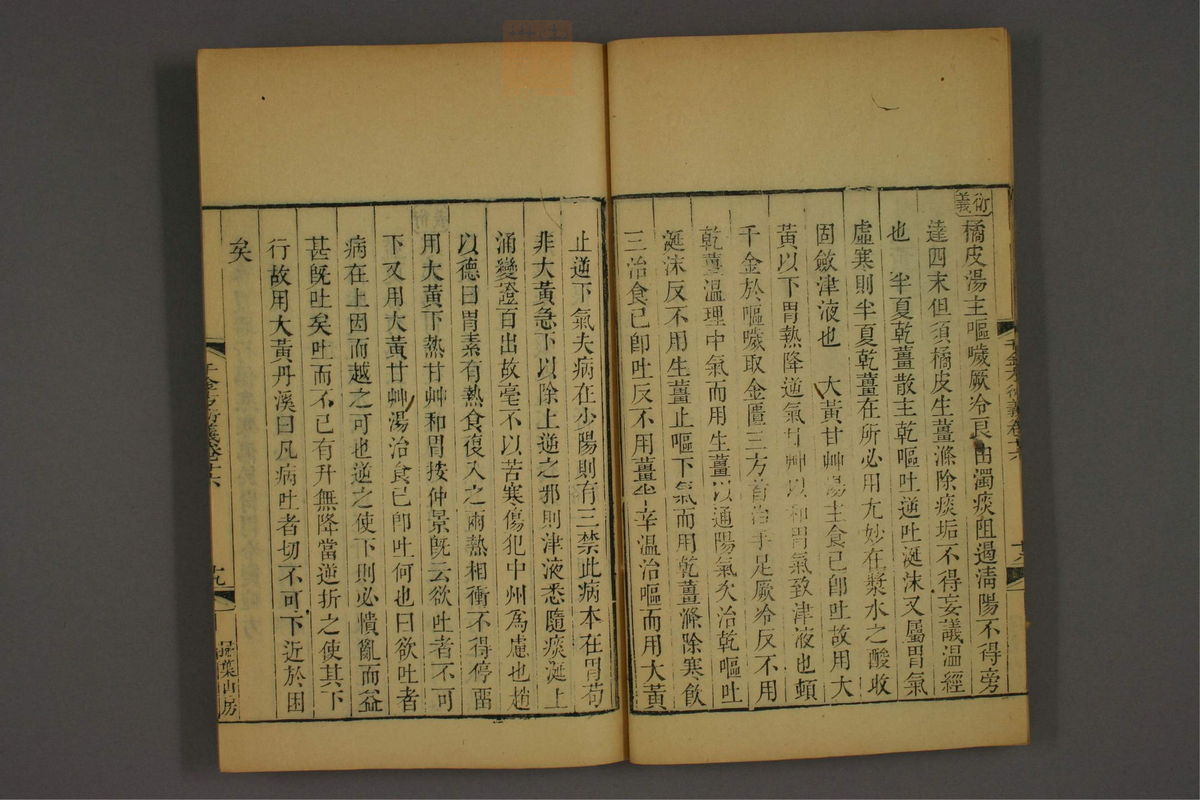 衍義
橘皮湯主嘔噦厥冷良由濁痰阻遏淸陽不得旁
達四末但須橘皮生薑滌除痰垢不得妄議溫經
也　半夏乾薑散主乾嘔吐逆吐涎沫又屬胃氣
虛寒則半夏乾薑在所必用尤妙在漿水之酸收
固斂津液也　大黃甘艸湯主食已卽吐故用大
黃以下胃熱降逆氣甘艸以和胃氣致津液也頻
千金於嘔噦取金匱三方首治手足厥冷反不用
乾薑溫理中氣而用生薑以通陽氣欠治乾嘔吐
涎沫反不用生薑止嘔下氣而用乾薑滌除寒飮
三治食已卽吐反不用薑半辛溫治嘔而用大黃
千金方衍義卷十六
十八
止逆下氣夫病在少陽則有三禁此病本在胃苟
非大黃急下以除上逆之邪則津液悉隨痰涎上
涌變證百出故毫不以苦寒傷犯中州爲慮也趙
以德曰胃素有熱食復入之兩熱相衝不得停畱
用大黃下熱甘艸和胃按仲景旣云欲吐者不可
下又用大黃甘艸湯治食已卽吐何也曰欲吐者
病在上因而越之可也逆之使下則必憒亂而益
甚旣吐矣吐而不已有升無降當逆折之使其下
行故用大黃丹溪曰凡病吐者切不可下近於困
矣
千金方衍義卷十六
十九
掃葉山房